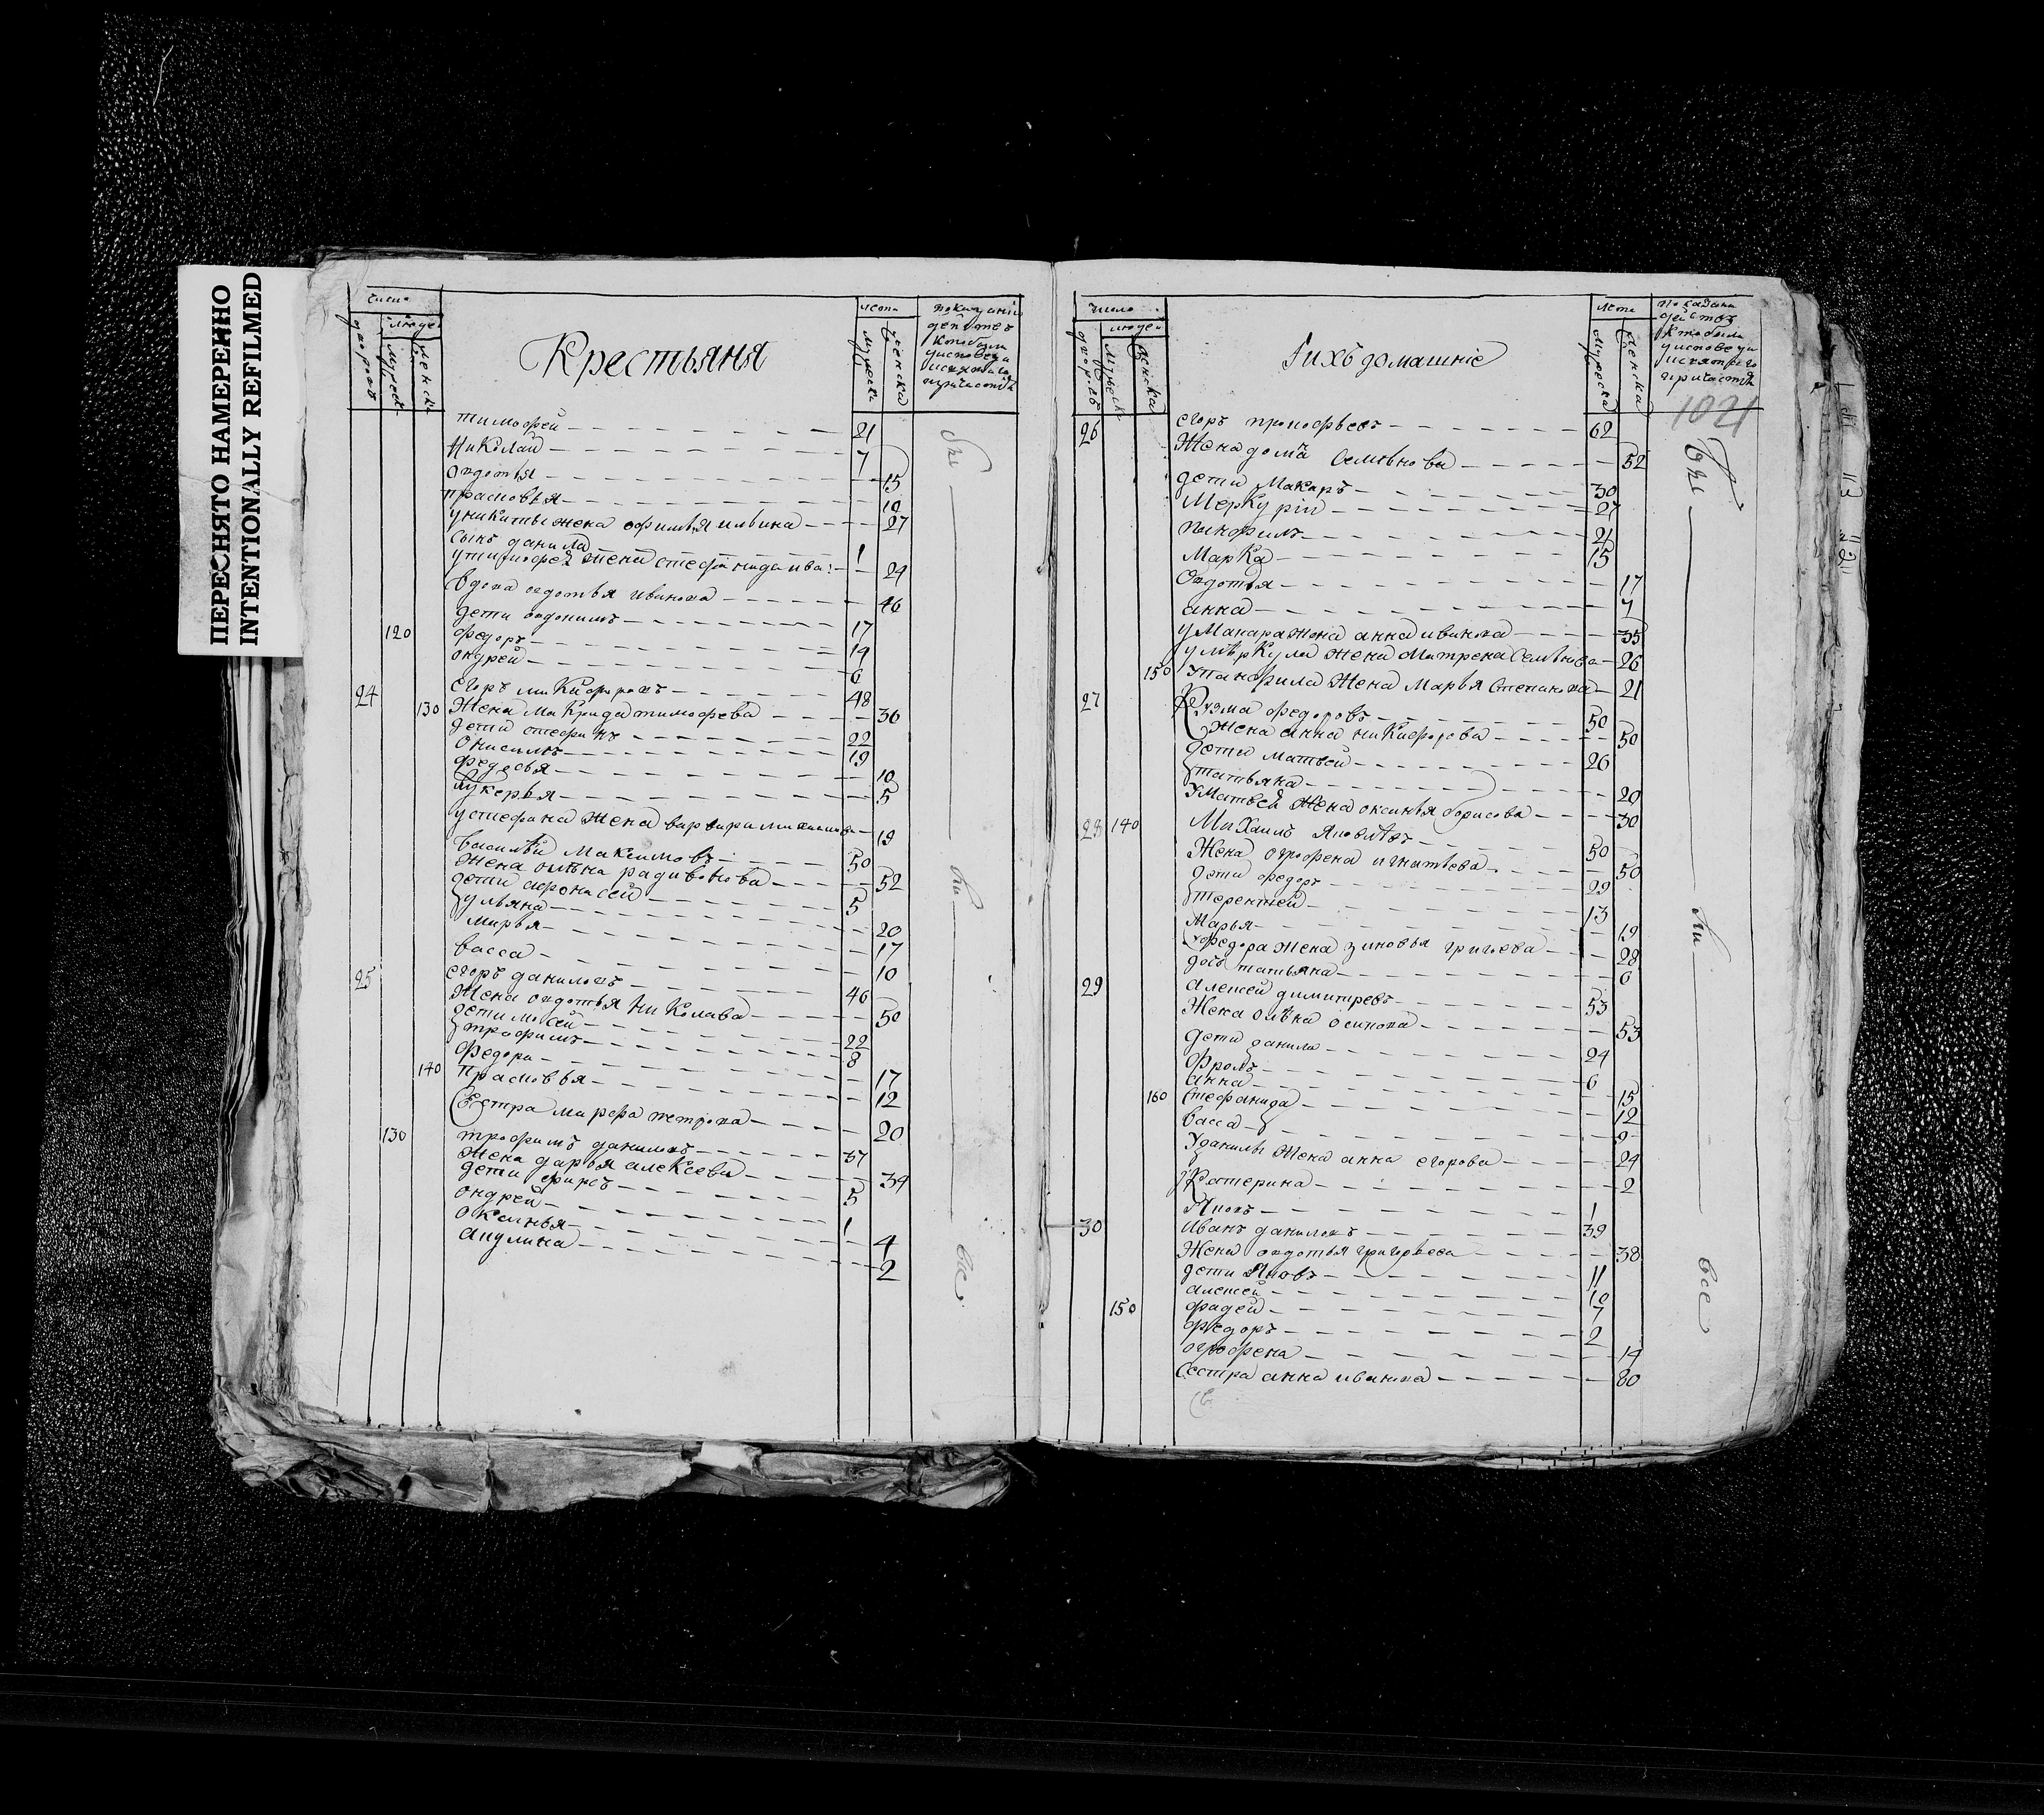 ПЕРЕСНЯТО НАМЕРЕННО
INTENTIONALLY REFILMED
число
людей
дворовъ
мужеск
женск
Крестьяня
лета
мужеска
женска
тимофей 21
Николай 7
овдотья 15
прасковья 10
уникиты жена офимья ильина 27
сынъ данила 1
утимофея жена стефанида ива: 24
вдова овдотья иванова 46
дети овдокимъ 17
120 федоръ 14
ондрей 6
24 егоръ никифоровъ 48
130 Жена макрида тимофева 36
дети стефанъ 22
онисимъ 19
федосья 10
лукерья 5
устефана жена варвара 19
василей максимовъ 50
жена олѣна радивонова 52
дети афонасей 5
ульяна 20
марья 17
васса 10
25 егоръ даниловъ 46
Жена овдотья Николава 50
дети мосей 22
трофимъ 8
федора 17
140 прасковья 12
Сестра марфа петрова 20
130 трофимъ даниловъ 37
жена дарья алексева 34
дети фирсъ 5
ондрей 1
оксинья 4
акулина 2
бы
ли
все
число
людей
дворовъ
мужеск
женска
Іихъ домашніе
лета
мужеска
женска
1021
26 егоръ прокофьевъ 62
Жена домна Семѣнова 52
дети Макаръ 30
Меркурій 27
панфилъ 21
Марка 15
Овдотья 17
анна 7
у Макара жена анна иванова 35
у мѣркула жена Матрена Семѣнова 26
150 у панфила Жена Марья Степанова 21
27 Кузма федоровъ 50
Жена анна никифорова 50
дети матвей 26
татьяна 20
у Матвея Жена оксинья борисова 30
28 140 Михаилъ яковлѣвъ 50
Жена огрофена игнатьева 50
дети федоръ 29
терентей 13
Марья 19
уфедора жена зиновья григоева 28
дочь татьяна 6
29 алексей димитревъ 53
Жена олѣна осипова 53
дети данила 24
фролъ 6
анна 15
160 Стефанида 12
васса 9
Уданилы Жена анна егорова 24
Катерина 2
Яковъ 1
30 Иванъ даниловъ 39
Жена овдотья григорьева 38
дети Яковъ 11
алексей 10
150 фадей 7
федоръ 2
огрофена 14
Сестра анна иванова 80
бы
ли
все